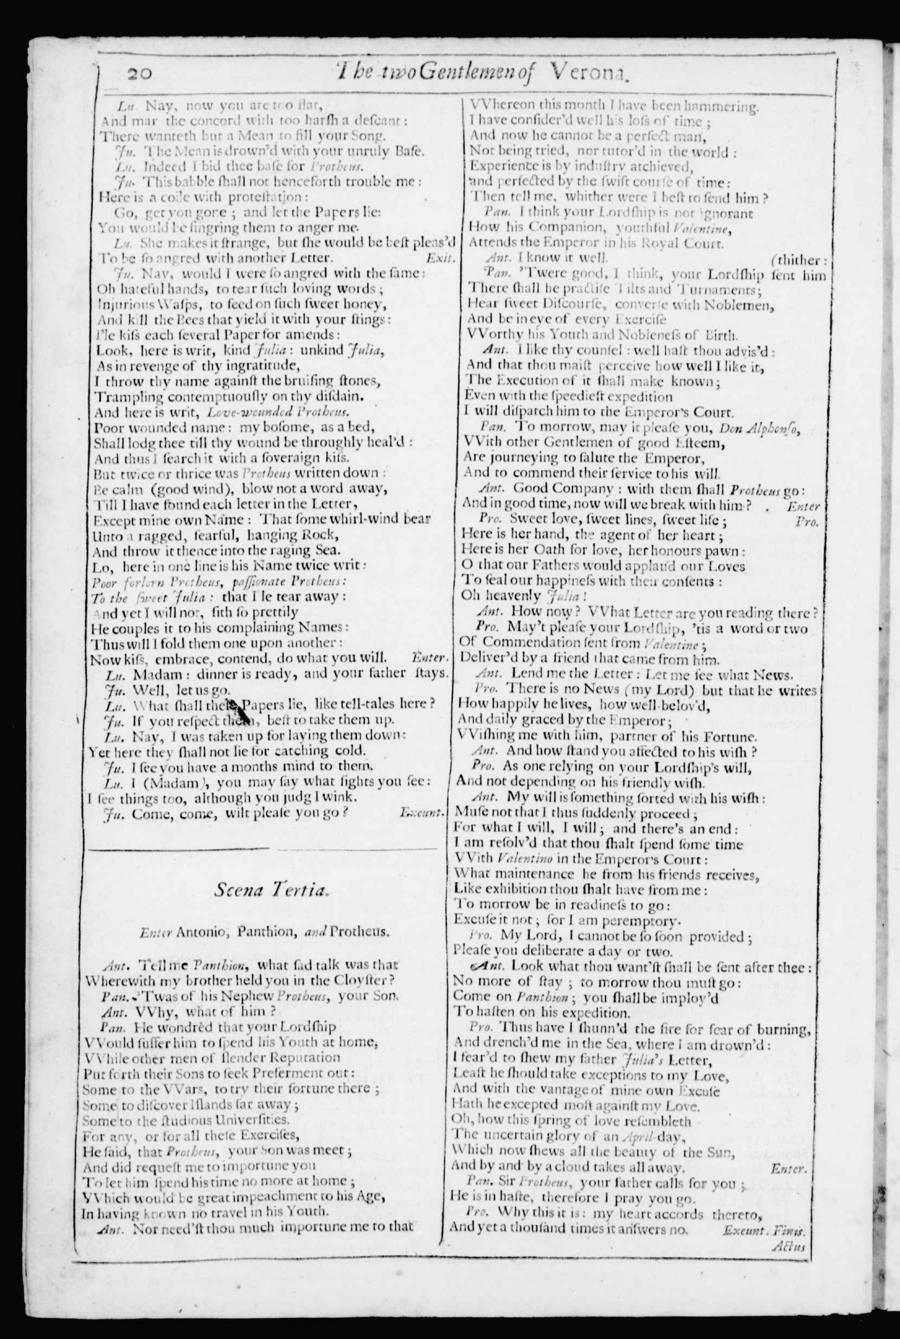 20
The two Gentlemen of Verona.
Lu. Nay, now you are too flat,
And mar the concord with too harſh a deſcant:
There wanteth but a Mean to fill your Song.
Ju. The Mean is drown'd with your unruly Baſe.
Lu. Indeed I bid thee baſe for Protheus.
Ju. This babble ſhall not henceforth trouble me:
Here is a coile with proteſtation:
Go, get you gone; and let the Papers lie:
You would be fingring them to anger me.
Lu. She makes it ſtrange, but ſhe would be beſt pleas'd
To be ſo angred with another Letter. Exit.
Ju. Nay, would I were ſo angred with the ſame:
Oh hateful hands, to tear ſuch loving words;
Injurious Waſps, to feed on ſuch ſweet honey,
And kill the Bees that yield it with your ſtings:
I'le kiſs each ſeveral Paper for amends:
Look, here is writ, kind Julia: unkind Julia,
As in revenge of thy ingratitude,
I throw thy name againſt the bruiſing ſtones,
Trampling contemptuouſly on thy diſdain.
And here is writ, Love-wounded Protheus.
Poor wounded name: my boſome, as a bed,
Shall lodg thee till thy wound be throughly heal'd:
And thus I ſearch it with a ſoveraign kiſs.
But twice or thrice was Protheus written down:
Be calm (good wind), blow not a word away,
Till I have found each letter in the Letter,
Except mine own Name: That ſome whirl-wind bear
Unto a ragged, fearful, hanging Rock,
And throw it thence into the raging Sea.
Lo, here in one line is his Name twice writ:
Poor forlorn Protheus, paſſionate Protheus:
To the ſweet Julia: that I le tear away:
And yet I will not, ſith ſo prettily
He couples it to his complaining Names:
Thus will I fold them one upon another:
Now kiſs, embrace, contend, do what you will. Enter.
Lu. Madam: dinner is ready, and your father ſtays.
Ju. Well, let us go.
Lu. What ſhall theſe Papers lie, like tell-tales here?
Ju. If you reſpect them, beſt to take them up.
Lu. Nay, I was taken up for laying them down:
Yet here they ſhall not lie for catching cold.
Ju. I ſee you have a months mind to them.
Lu. I (Madam), you may ſay what ſights you ſee:
I ſee things too, although you judg I wink.
Ju. Come, come, wilt pleaſe you go? Exeunt.
Scena Tertia.
Enter Antonio, Panthion, and Protheus.
Ant. Tell me Panthion, what ſad talk was that
Wherewith my brother held you in the Cloyſter?
Pan. 'Twas of his Nephew Protheus, your Son.
Ant. VVhy, what of him?
Pan. He wondred that your Lordſhip
VVould ſuffer him to ſpend his Youth at home,
VVhile other men of ſlender Reputation
Put forth their Sons to ſeek Preferment out:
Some to the VVars, to try their fortune there;
Some to diſcover Iſlands far away;
Some to the ſtudious Univerſities.
For any, or for all theſe Exerciſes,
He ſaid, that Protheus, your Son was meet;
And did requeſt me to importune you
To let him ſpend his time no more at home;
VVhich would be great impeachment to his Age,
In having known no travel in his Youth.
Ant. Nor need'ſt thou much importune me to that
VVhereon this month I have been hammering.
I have conſider'd well his loſs of time;
And now he cannot be a perfect man,
Not being tried, nor tutor'd in the world:
Experience is by induſtry atchieved,
and perfected by the ſwift courſe of time:
Then tell me, whither were I beſt to ſend him?
Pan. I think your Lordſhip is not ignorant
How his Companion, youthful Valentine,
Attends the Emperor in his Royal Court.
Ant. I know it well. (thither:
Pan. 'Twere good, I think, your Lordſhip ſent him
There ſhall he practiſe Tilts and Turnaments;
Hear ſweet Diſcourſe, converſe with Noblemen,
And be in eye of every Exerciſe
VVorthy his Youth and Nobleneſs of Birth.
Ant. I like thy counſel: well haſt thou advis'd:
And that thou maiſt perceive how well I like it,
The Execution of it ſhall make known;
Even with the ſpeedieſt expedition
I will diſpatch him to the Emperor's Court.
Pan. To morrow, may it pleaſe you, Don Alphonſo,
VVith other Gentlemen of good Eſteem,
Are journeying to ſalute the Emperor,
And to commend their ſervice to his will.
Ant. Good Company: with them ſhall Protheus go:
And in good time, now will we break with him? Enter
Pro. Sweet love, ſweet lines, ſweet life; Pro.
Here is her hand, the agent of her heart;
Here is her Oath for love, her honours pawn:
O that our Fathers would applaud our Loves
To ſeal our happineſs with their conſents:
Oh heavenly Julia!
Ant. How now? VVhat Letter are you reading there?
Pro. May't pleaſe your Lordſhip, 'tis a word or two
Of Commendation ſent from Valentine;
Deliver'd by a friend that came from him.
Ant. Lend me the Letter: Let me ſee what News.
Pro. There is no News (my Lord) but that he writes
How happily he lives, how well-belov'd,
And daily graced by the Emperor;
VViſhing me with him, partner of his Fortune.
Ant. And how ſtand you affected to his wiſh?
Pro. As one relying on your Lordſhip's will,
And not depending on his friendly wiſh.
Ant. My will is ſomething ſorted with his wiſh:
Muſe not that I thus ſuddenly proceed;
For what I will, I will; and there's an end:
I am reſolv'd that thou ſhalt ſpend ſome time
VVith Valentino in the Emperor's Court:
What maintenance he from his friends receives,
Like exhibition thou ſhalt have from me:
To morrow be in readineſs to go:
Excuſe it not; for I am peremptory.
Pro. My Lord, I cannot be ſo ſoon provided;
Pleaſe you deliberate a day or two.
Ant. Look what thou want'ſt ſhall be ſent after thee:
No more of ſtay; to morrow thou muſt go:
Come on Panthion; you ſhall be imploy'd
To haſten on his expedition.
Pro. Thus have I ſhunn'd the fire for fear of burning,
And drench'd me in the Sea, where I am drown'd:
I fear'd to ſhew my father Julia's Letter,
Leaſt he ſhould take exceptions to my Love,
And with the vantage of mine own Excuſe
Hath he excepted moſt againſt my Love.
Oh, how this ſpring of love reſembleth
The uncertain glory of an April-day,
Which now ſhews all the beauty of the Sun,
And by and by a cloud takes all away. Enter.
Pan. Sir Protheus, your father calls for you;
He is in haſte, therefore I pray you go.
Pro. Why this it is: my heart accords thereto,
And yet a thouſand times it anſwers no. Exeunt. Finis.
Actus